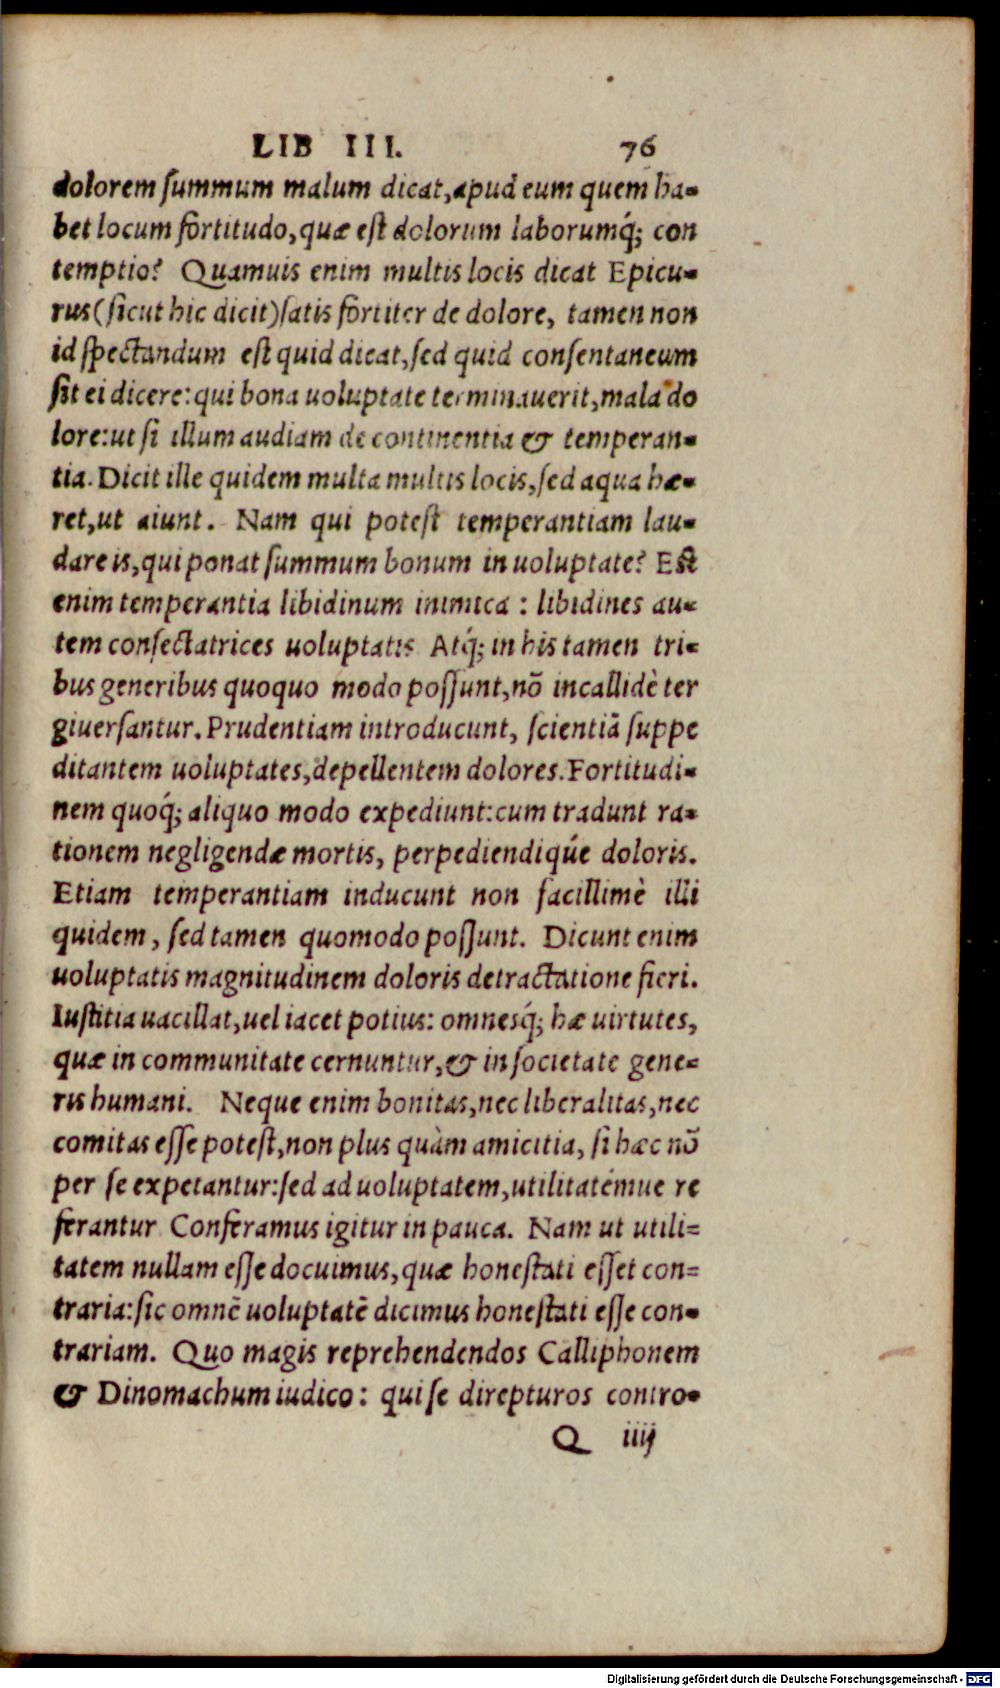 LIB III. 76
dolorem ſummum malum dicat, apud eum quem ha-
bet locum fortitudo, quæ eſt dolorum laborumq́; con
temptio? Quamuis enim multis locis dicat Epicu-
rus (ſicut hic dicit) ſatis fortiter de dolore, tamen non
id ſpectandum eſt quid dicat, ſed quid conſentaneum
ſit ei dicere: qui bona uoluptate terminauerit, mala do
lore: ut ſi illum audiam de continentia & temperan-
tia. Dicit ille quidem multa multis locis, ſed aqua hæ-
ret, ut aiunt. Nam qui poteſt temperantiam lau-
dare is, qui ponat ſummum bonum in uoluptate? Eſt
enim temperantia libidinum inimica: libidines au-
tem conſectatrices uoluptatis Atq́; in his tamen tri-
bus generibus quoquo modo poſſunt, nõ incallidè ter
giuerſantur. Prudentiam introducunt, ſcientiã ſuppe
ditantem uoluptates, depellentem dolores. Fortitudi-
nem quoq́; aliquo modo expediunt: cum tradunt ra-
tionem negligendæ mortis, perpediendiq́ue doloris.
Etiam temperantiam inducunt non facillimè illi
quidem, ſed tamen quomodo poſſunt. Dicunt enim
uoluptatis magnitudinem doloris detractatione fieri.
Iuſtitia uacillat, uel iacet potius: omnesq́; hæ uirtutes,
quæ in communitate cernuntur, & in ſocietate gene-
ris humani. Neque enim bonitas, nec liberalitas, nec
comitas eſſe poteſt, non plus quàm amicitia, ſi hæc nõ
per ſe expetantur: ſed ad uoluptatem, utilitatémue re
ferantur Conferamus igitur in pauca. Nam ut utili-
tatem nullam eſſe docuimus, quæ honeſtati eſſet con-
traria: ſic omnẽ uoluptatẽ dicimus honeſtati eſſe con-
trariam. Quo magis reprehendendos Calliphonem
& Dinomachum iudico: qui ſe direpturos contro-
Q iiij
Digitalisierung gefördert durch die Deutsche Forschungsgemeinschaft - DFG